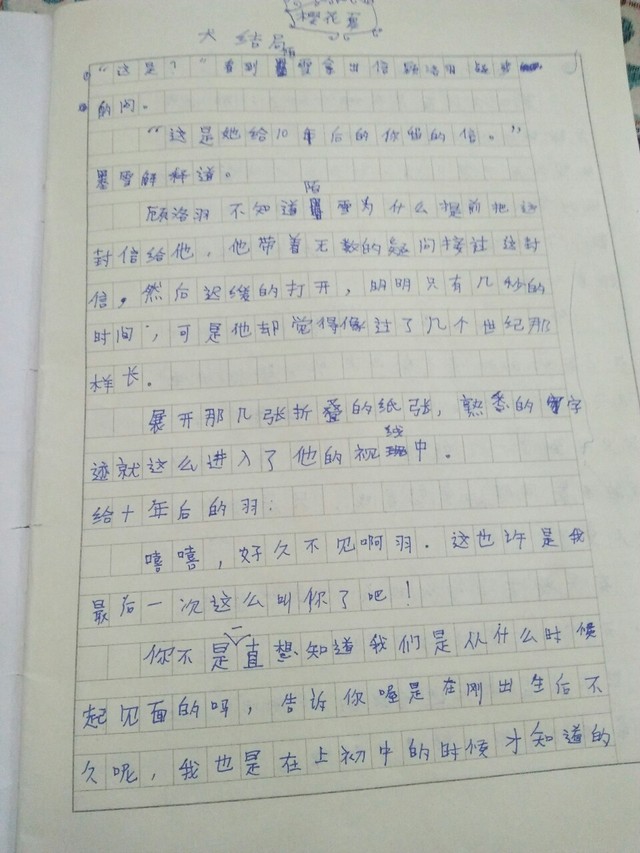 樱花夏
大结局
"这是？"看到陌雪拿出信顾洛羽疑惑
的问。
"这是她给10年后的你留的信。"
墨雪解释道。
顾洛羽不知道陌雪为什么提前把这
封信给他，他带着无数的疑问接过这封
信，然后迟缓的打开，明明只有几秒的
时间，可是他却觉得像过了几个世纪那
样长。
展开那几张折叠的纸张，熟悉的字
迹就这么进入了他的视线中。
给十年后的羽：
嘻嘻，好久不见啊羽．这也许是我
最后一次这么叫你了吧！
你不是一直想知道我们是从什么时候
起见面的吗，告诉你喔是在刚出生后不
久呢，我也是在上初中的时候才知道的